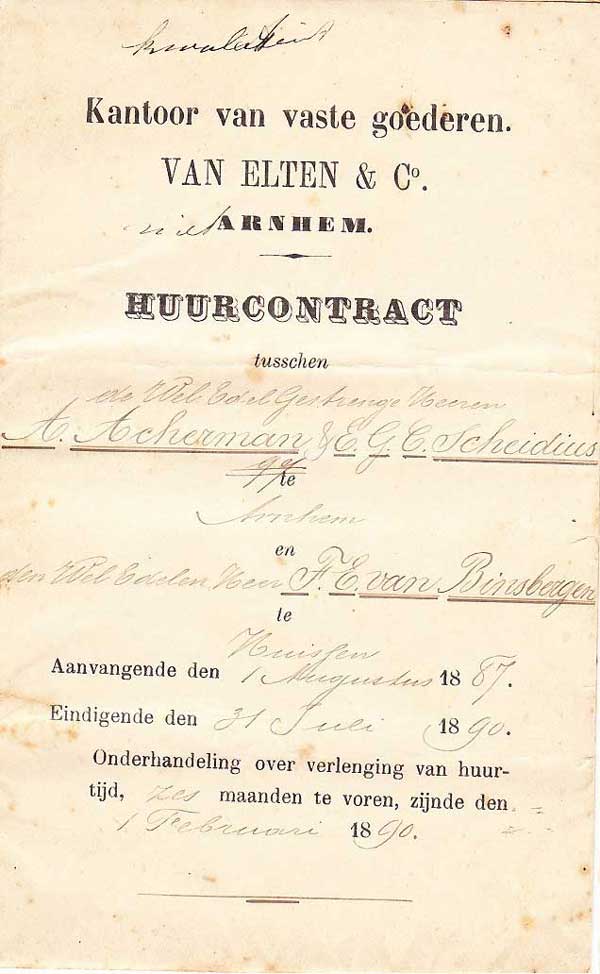 Kantoor van vaste goederen.
VAN ELTEN & Co.
ARNHEM.
HUURCONTRACT
tusschen
de Wel Edel Gestrenge Heeren
A. Acherman & E. G. C. Scheidius
te
Arnhem
en
den Wel Edelen Heer F. E. van Binsbergen
te
Huissen
Aanvangende den 1 Augustus 1887.
Eindigende den 31 Juli 1890.
Onderhandeling over verlenging van huur-
tijd, zes maanden te voren, zijnde den
1 Februari 1890.